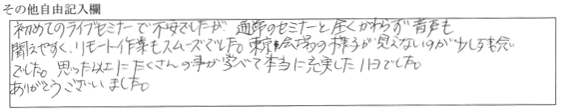 その他自由記入欄
初めてのライブセミナーで不安でしたが 通常のセミナーと全くかわらず音声も
聞えやすく、リモート作業もスムーズでした。東京会場の様子が見えないのが少し残念
でした。思った以上にたくさんの事が学べて本当に充実した1日でした。
ありがとうございました。